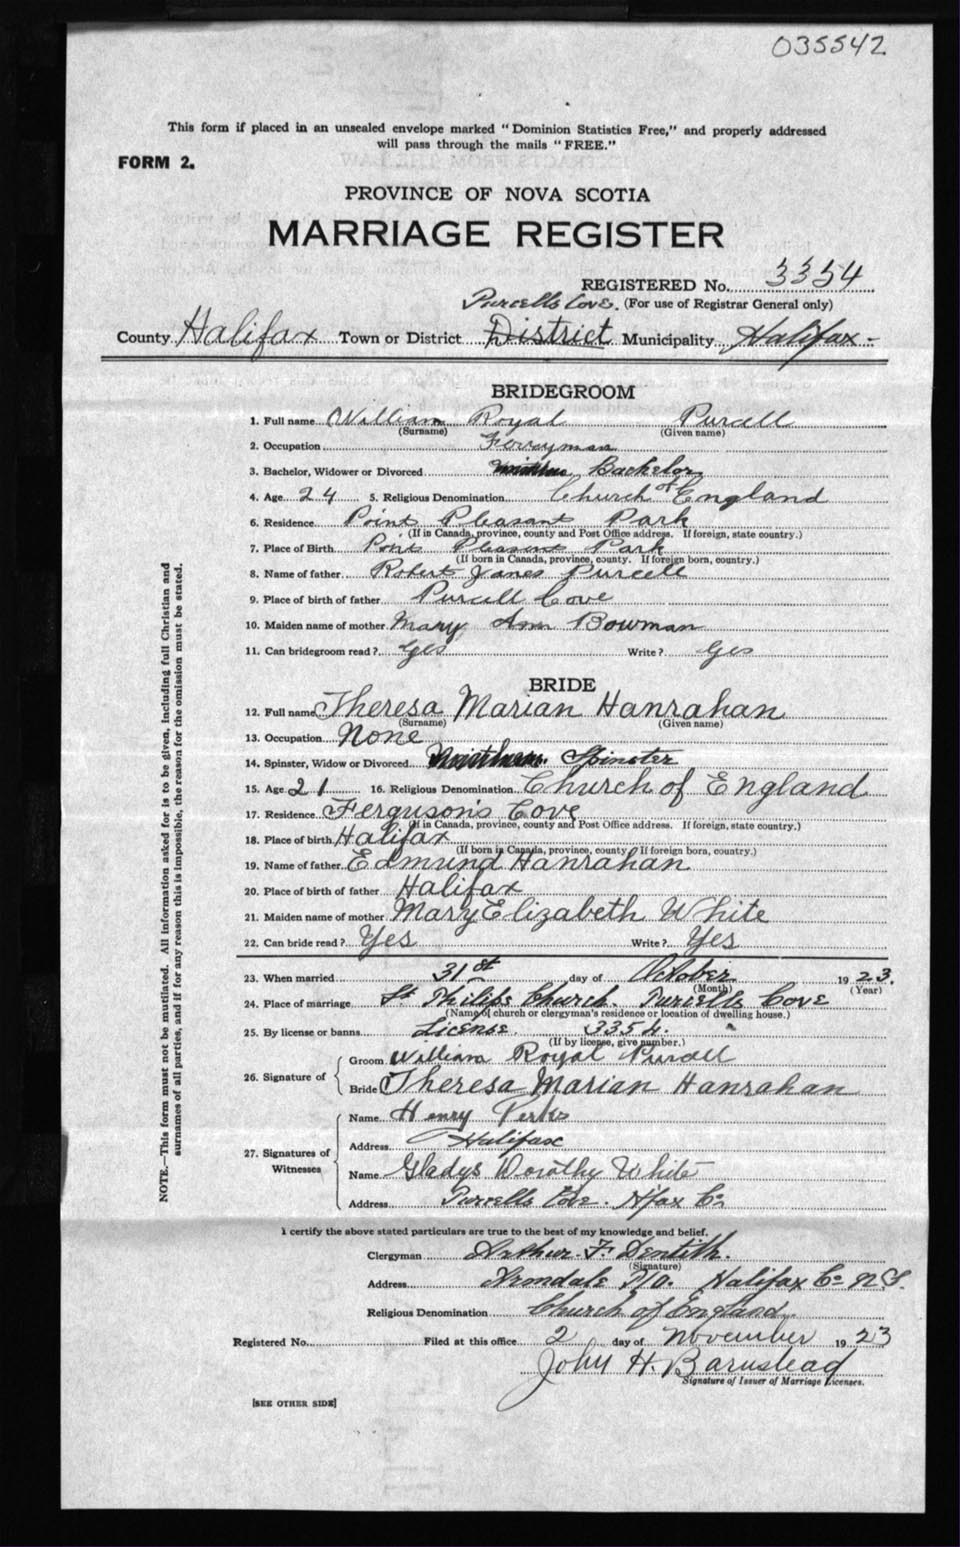 035542
This form if placed in an unsealed envelope marked "Dominion Statistics Free," and properly addressed
will pass through the mails "FREE."
FORM 2.
PROVINCE OF NOVA SCOTIA
MARRIAGE REGISTER
REGISTERED No. 3354
Purcells Cove. (For use of Registrar General only)
County Halifax Town or District District Municipality Halifax
BRIDEGROOM
1. Full name William Royal Purcell
(Surname) (Given name)
2. Occupation Ferryman
3. Bachelor, Widower or Divorced Bachelor
4. Age 24 5. Religious Denomination Church of England
6. Residence Point Pleasant Park
(If in Canada, province, county and Post Office address. If foreign, state country.)
7. Place of Birth Point Pleasant Park
(If born in Canada, province, county. If foreign born, country.)
8. Name of father Robert James Purcell
9. Place of birth of father Purcell Cove
10. Maiden name of mother Mary Ann Bowman
11. Can bridegroom read? Yes Write? Yes
BRIDE
12. Full name Theresa Marian Hanrahan
(Surname) (Given name)
13. Occupation None
14. Spinster, Widow or Divorced Spinster
15. Age 21 16. Religious Denomination Church of England
17. Residence Ferguson's Cove
(If in Canada, province, county and Post Office address. If foreign, state country.)
18. Place of birth Halifax
(If born in Canada, province, county If foreign born, country.)
19. Name of father Edmund Hanrahan
20. Place of birth of father Halifax
21. Maiden name of mother Mary Elizabeth White
22. Can bride read? Yes Write? Yes
23. When married 31st day of October 1923.
(Month) (Year)
24. Place of marriage St Philips Church. Purcells Cove
(Name of church or clergyman's residence or location of dwelling house.)
25. By license or banns License 3354.
(If by license, give number.)
26. Signature of Groom William Royal Purcell
Bride Theresa Marian Hanrahan
27. Signatures of Witnesses Name Henry Perks
Address Halifax
Name Gladys Dorothy White
Address Purcells Cove. Hfax Co
I certify the above stated particulars are true to the best of my knowledge and belief.
Clergyman Arthur. F. Dentith.
(Signature)
Address Armdale P/O. Halifax Co N.S.
Religious Denomination Church of England
Registered No. Filed at this office 2 day of November 1923
John H. Barnstead
Signature of Issuer of Marriage Licenses.
[SEE OTHER SIDE]
NOTE.—This form must not be mutilated. All information asked for is to be given, including full Christian and
surnames of all parties, and if for any reason this is impossible, the reason for the omission must be stated.